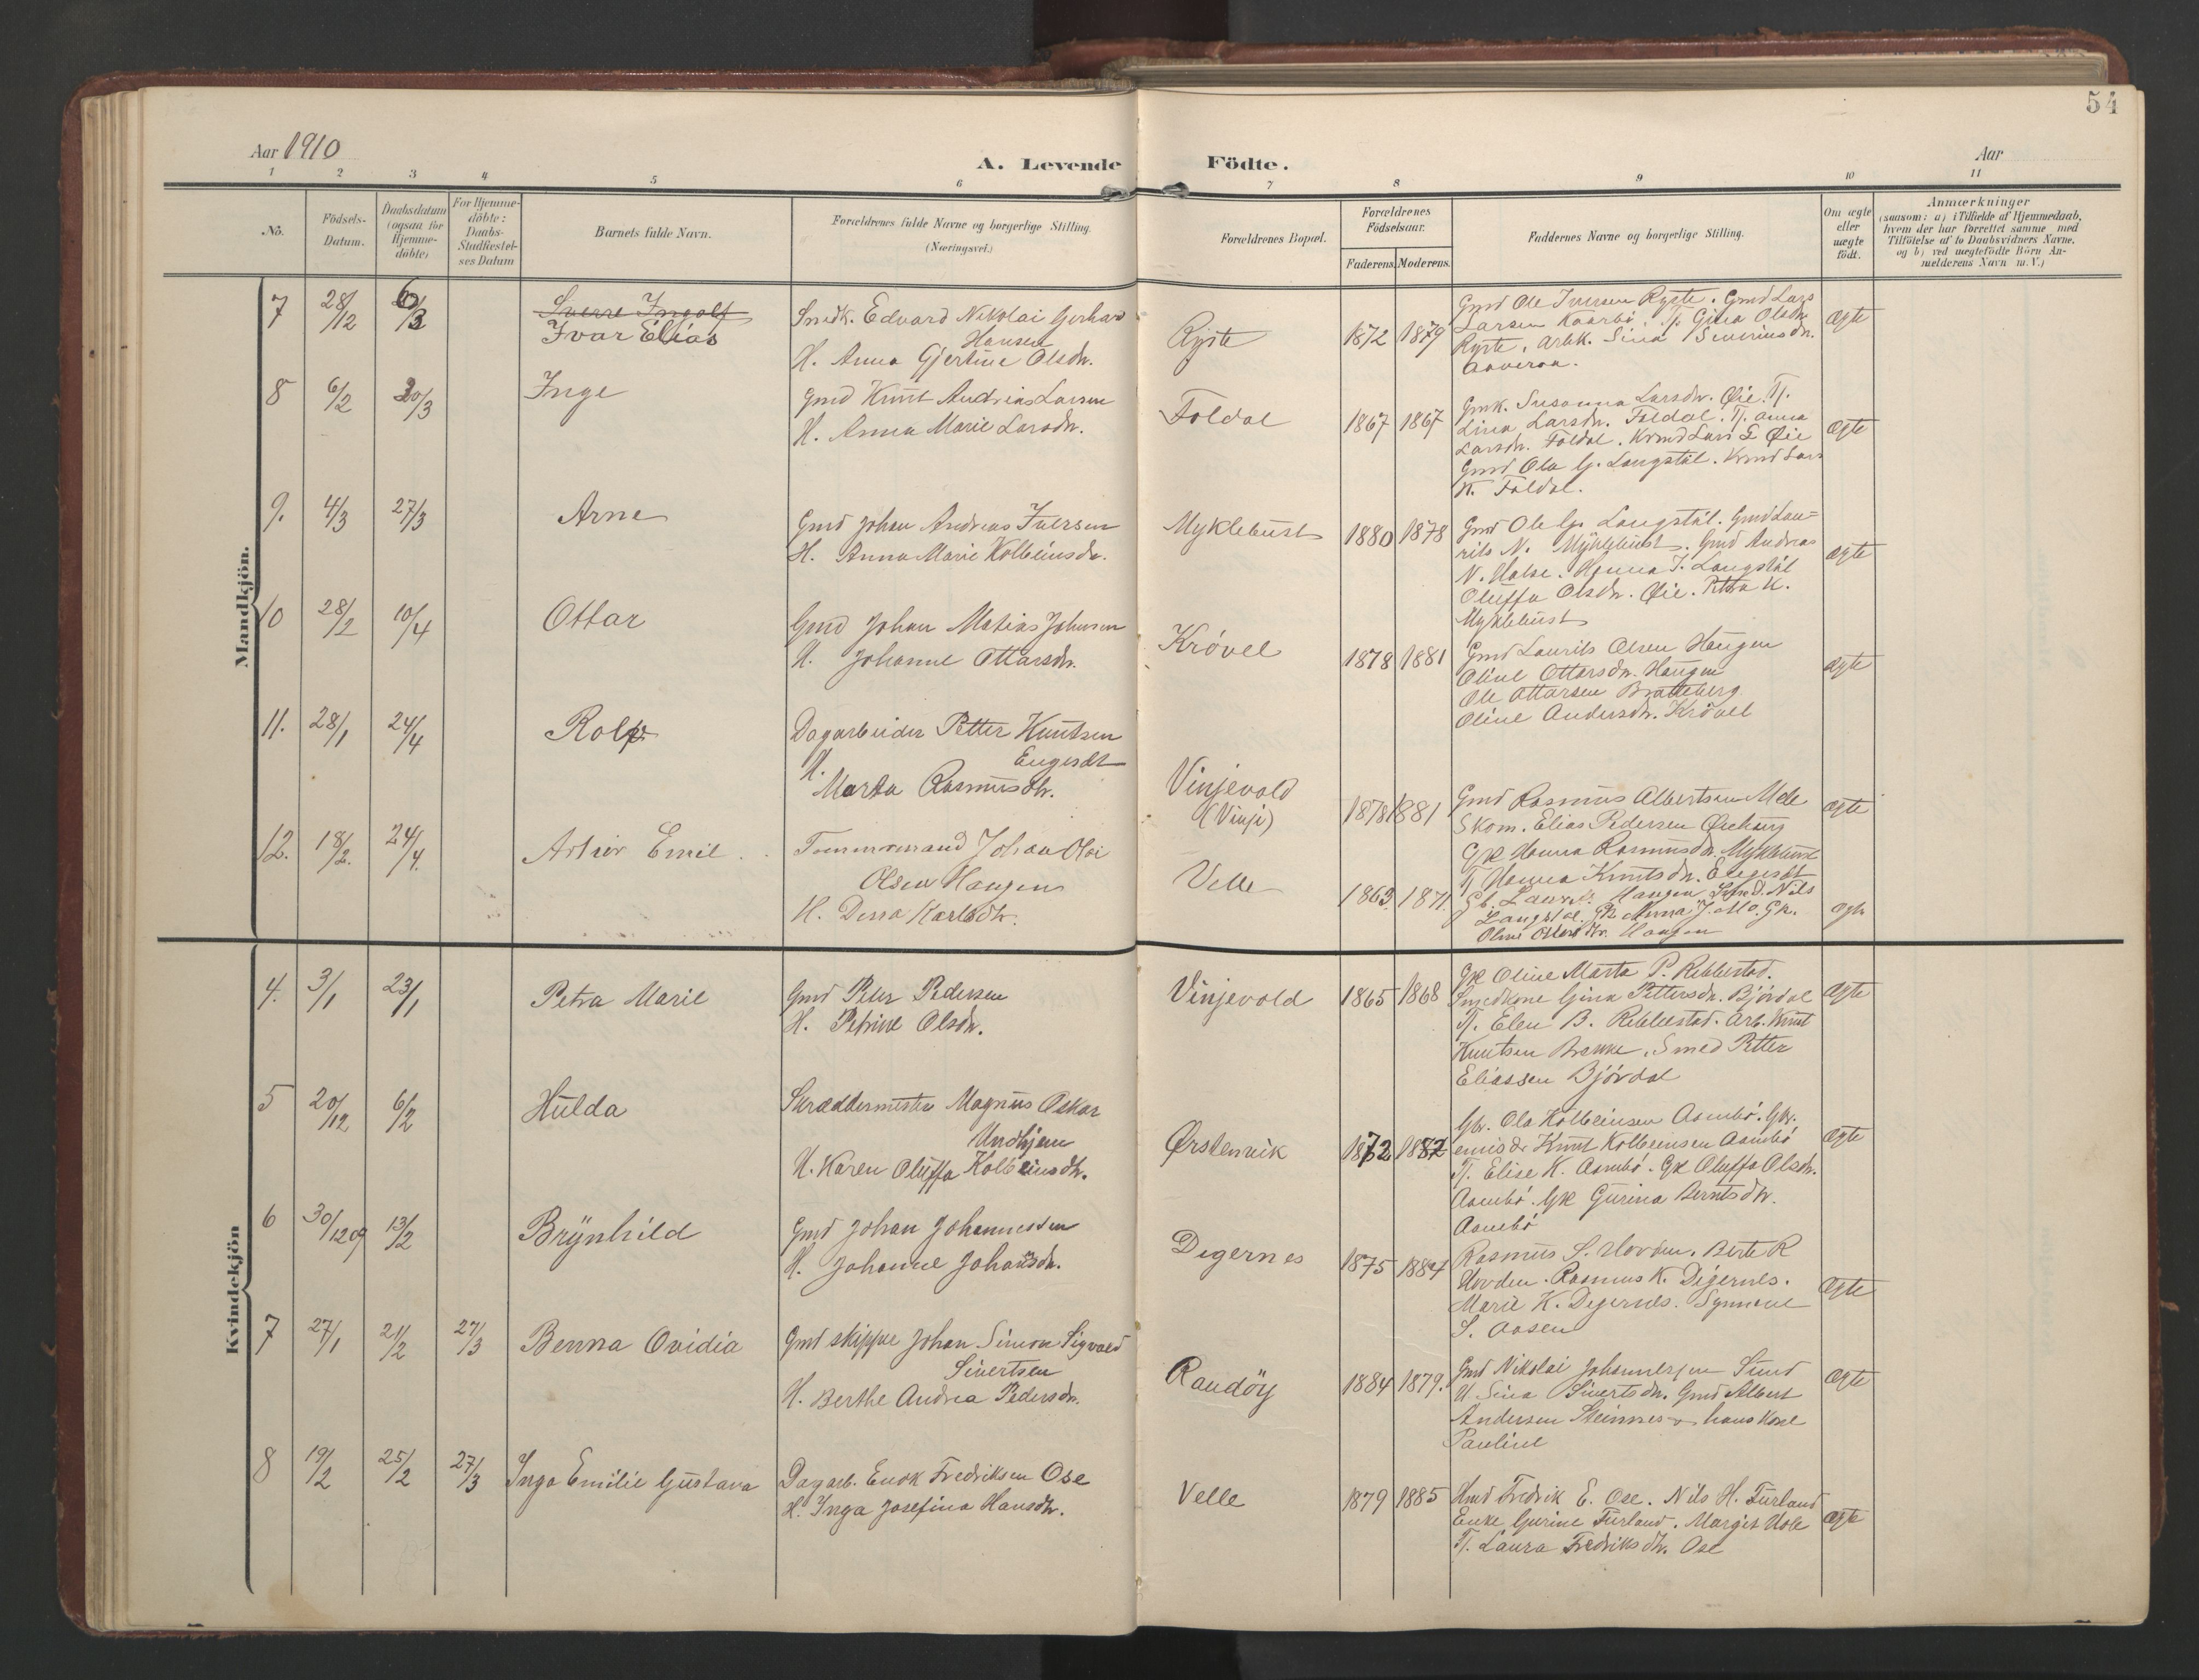 54
Aar 1910
A. Levende Födte.
Aar
1 2 3 4 5 6 7 8 9 10 11
No.
Födsels-
Datum.
Daabsdatum
(ogsaa for
Hjemme-
döbte)
For Hjemme-
döbte:
Daabs-
Stadfæstel-
ses Datum
Barnets fulde Navn.
Forældrenes fulde Navne og borgerlige Stilling.
(Næringsvei.)
Forældrenes Bopæl.
Forældrenes
Födselsaar.
Faderens. Moderens.
Faddernes Navne og borgerlige Stilling.
Om ægte
eller
uægte
födt.
Anmærkninger
(saasom: a) i Tilfælde af Hjemmedaab,
hvem der har forrettet samme med
Tilföielse af to Daabsvidners Navne,
og b) ved uægtefödte Börn An-
melderens Navn m. V.)
Mandkjön.
7 28/12 6/3
Sverre Ingolf
Ivar Elias
Smedk. Edvard Nikolai Gerhard
Hansen
H. Anna Gjertine Olsdr.
Ryste
1872 1879
Gmd Ole Iversen Ryste. Gmd Lars
Larsen Kaarbö. Gina Olsdr.
Ryste. Arbk. Sina Severinsdr.
Aaveraa.
ægte
8 6/2 20/3
Inge
Gmd Knut Andreas Larsen
H. Anna Marie Larsdr.
Foldal
1867 1867
Gmk. Susanna Larsdr. Øie. Tj.
Lina Larsdr. Foldal. Tj. Anna
Larsdr. Foldal. Lars G Øie
Gmd Ola G. Langstöl. Lars
K. Foldal.
ægte
9. 4/3 27/3
Arne
Gmd Johan Andreas Iversen
H. Anna Marie Kolbeinsdr.
Myklebust
1880 1878
Gmd Ole G. Langstöl. Gmd Lau-
rits N. Myklebust. Gmd Andreas
N. Halse. Hanna J. Langstöl
Oluffa Olsdr. Øie. Petra K.
Myklebust
ægte
10 28/2 10/4
Ottar
Gmd Johan Matias Johnsen
H. Johanne Ottarsdr.
Krövel
1878 1881
Gmd Laurits Olsen Haugen
Oline Ottarsdr. Haugen
Ole Ottarsen Bratteberg
Oline Andersdr. Krövel
ægte
11. 28/1 24/4
Rolv
Dagarbeider Petter Knutsen
Engeset
H.
Marta Rasmusdr.
Vinjevold
(Vinje)
1878 1881
Gmd Rasmus Albertsen Mele
Skom. Elias Pedersen
Gk Hanna Rasmusdr. Myklebust
Tj Hanna Knutsdr. Engeset
ægte
12. 18/2. 24/4.
Artur Emil
Tømmermand Johan Olai
Olsen Haugen
H. Dena Karlsdr.
Velle
1863. 1871.
Gb. Laurits Haugen Nils
Langstöl. Gk. Anna J. Mo. Gk.
Oline Otters dr. Haugen
ægte
Kvindekjön
4. 3/1 23/1
Petra Marie
Gmd Peter Pedersen
H. Petrine Olsdr.
Vinjevold
1865 1868
Gk Oline Marta P. Ribbestad.
Smedkone Gina Pettersdr. Björdal
Tj. Elen B. Ribbestad. Arb. Knut
Knutsen Brekke. Smed Petter
Eliassen Björdal
ægte
5 20/12 6/2
Hulda
Skræddermester Magnus Oskar
Undhjem
H. Karen Oluffa Kolbeinsdr.
Ørstenvik
1872 1887
Gbr. Ola Kolbeinsen Aambö. Gbr.
Knut Kolbeinsen Aambö
Tj. Elise K. Aambö. Gk Oluffa Olsdr.
Aambö. Gk Gurina Berntsdr.
Aambö
ægte
6 30/12 09 13/2
Brynhild
Gmd Johan Johannessen
H. Johanne Johansdr.
Digernes
1875 1884
Rasmus S. Hovden. Berte R
Hovden. Rasmus K. Digernes.
Marie K. Digernes. Synnøve
S. Aasen
ægte
7 27/1 21/2 27/3
Benna Ovidia
Gmd skipper Johan Simon Sigvald
Sivertsen
H. Berthe Andrea Pedersdr.
Raudöy
1884 1879.
Gmd Nikolai Johannessen Sund
H Sina Sivertsdr. Gmd Albert
Andersen Steinnes hans Kone
Pauline
ægte
8 19/2 25/2 27/3
Inga Emilie Gustava
Dagarb. Enok Fredriksen Ose
H. Inga Josefina Hansdr.
Velle
1879 1885
Fredrik E. Ose. Nils H. Furland
Enke Gurine Furland. Margit Ose
Tj. Laura Fredriksdr. Ose
ægte